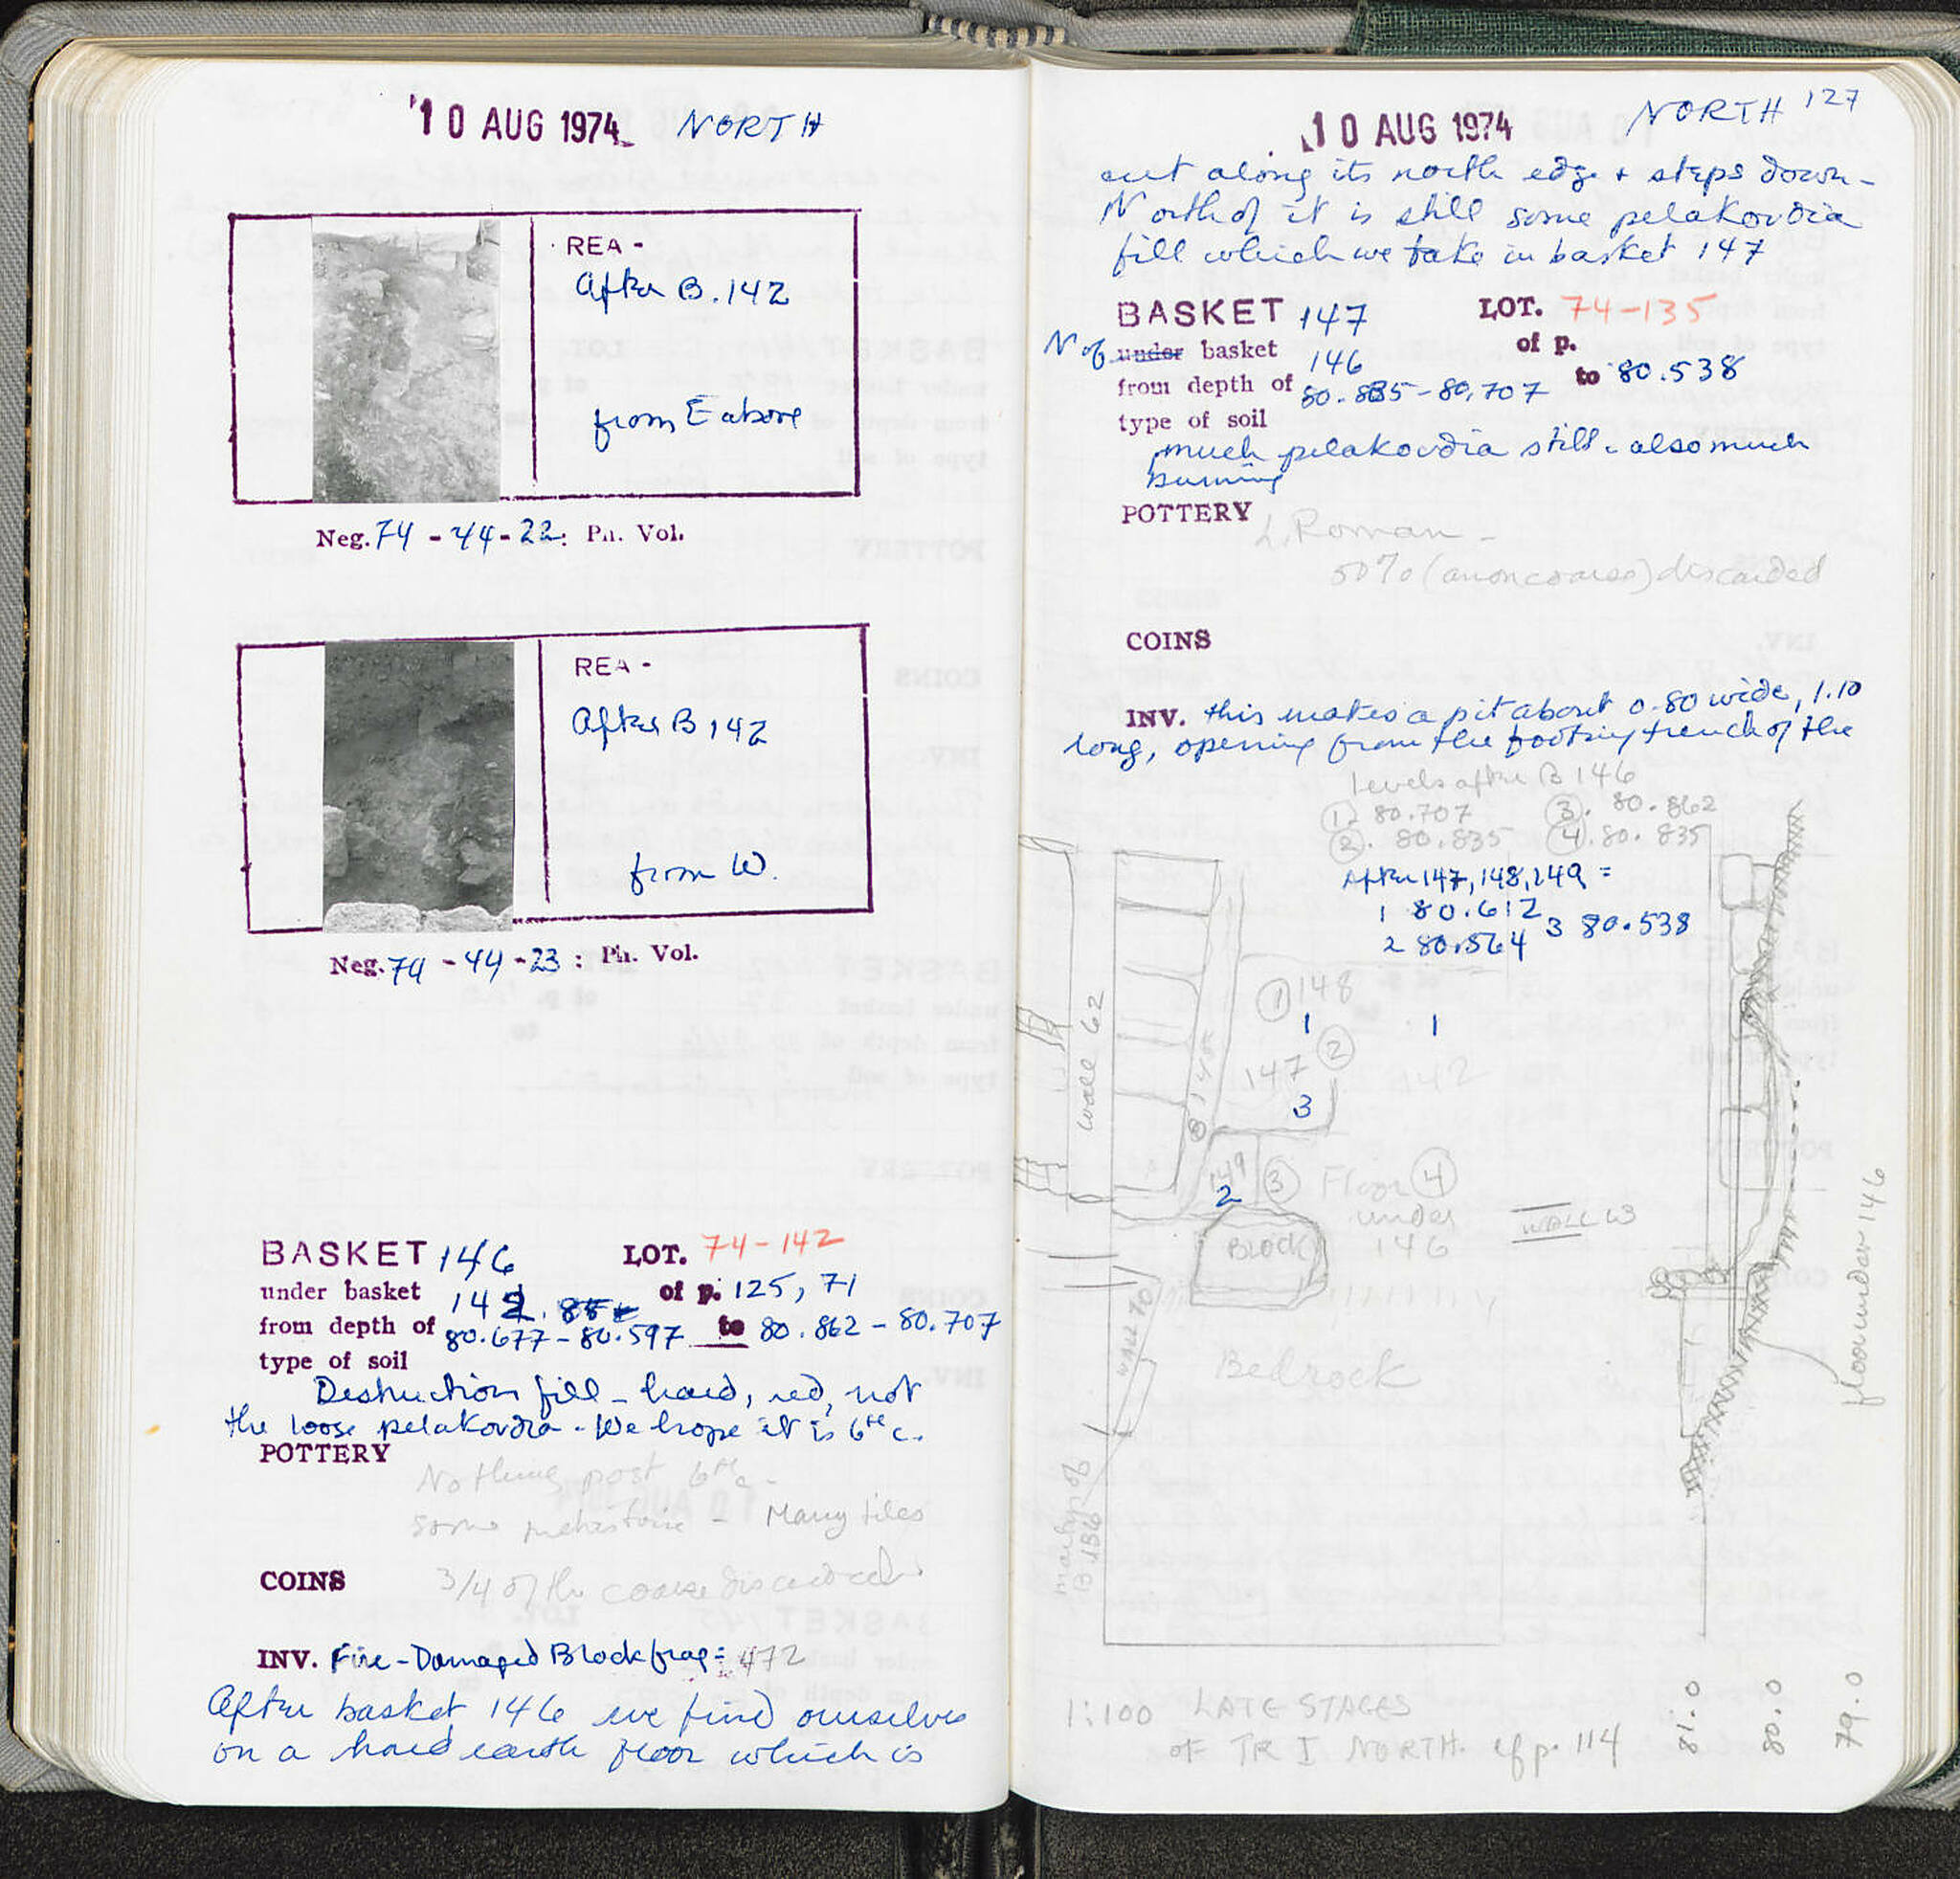 10 AUG 1974 NORTH
REA -
After B. 142
from E above
Neg. 74 - 44 - 22 : Ph. Vol.
REA -
After B 142
from W.
Neg. 74 - 44 - 23 : Ph. Vol.
BASKET 146 LOT. 74-142
under basket 142. of p. 125, 71
from depth of 80.677 - 80.597 to 80.862 - 80.707
type of soil
Destruction fill - hard, red, not
the loose pelakoudia - We hope it is 6th c.
POTTERY
Nothing post 6th c -
some prehistoric - Many tiles
COINS 3/4 of the coarse discarded
INV. Fire-Damaged Block frag = 472
After basket 146 we find ourselves
on a hard earth floor which is
10 AUG 1974 NORTH 127
cut along its north edge + steps down -
North of it is still some pelakoudia
fill which we take in basket 147
BASKET 147 LOT. 74-135
N of under basket 146 of p.
from depth of 80.835 - 80.707 to 80.538
type of soil
much pelakoudia still - also much
burning
POTTERY L. Roman -
50% (all coarse) discarded
COINS
INV. this makes a pit about 0.80 wide, 1.10
long, opening from the footing trench of the
levels after B 146
1. 80.707 3. 80.862
2. 80.835 4. 80.835
After 147, 148, 149 =
1 80.612 3 80.538
2 80.564
wall 62
1 148
1 1
2
147
3
149 3 Floor 4
2 under
146
BLOCK
WALL 63
WALL 70
Bedrock
B. 136
floor under 146
1:100 LATE STAGES
OF TR I NORTH. cf p. 114
81.0
80.0
79.0